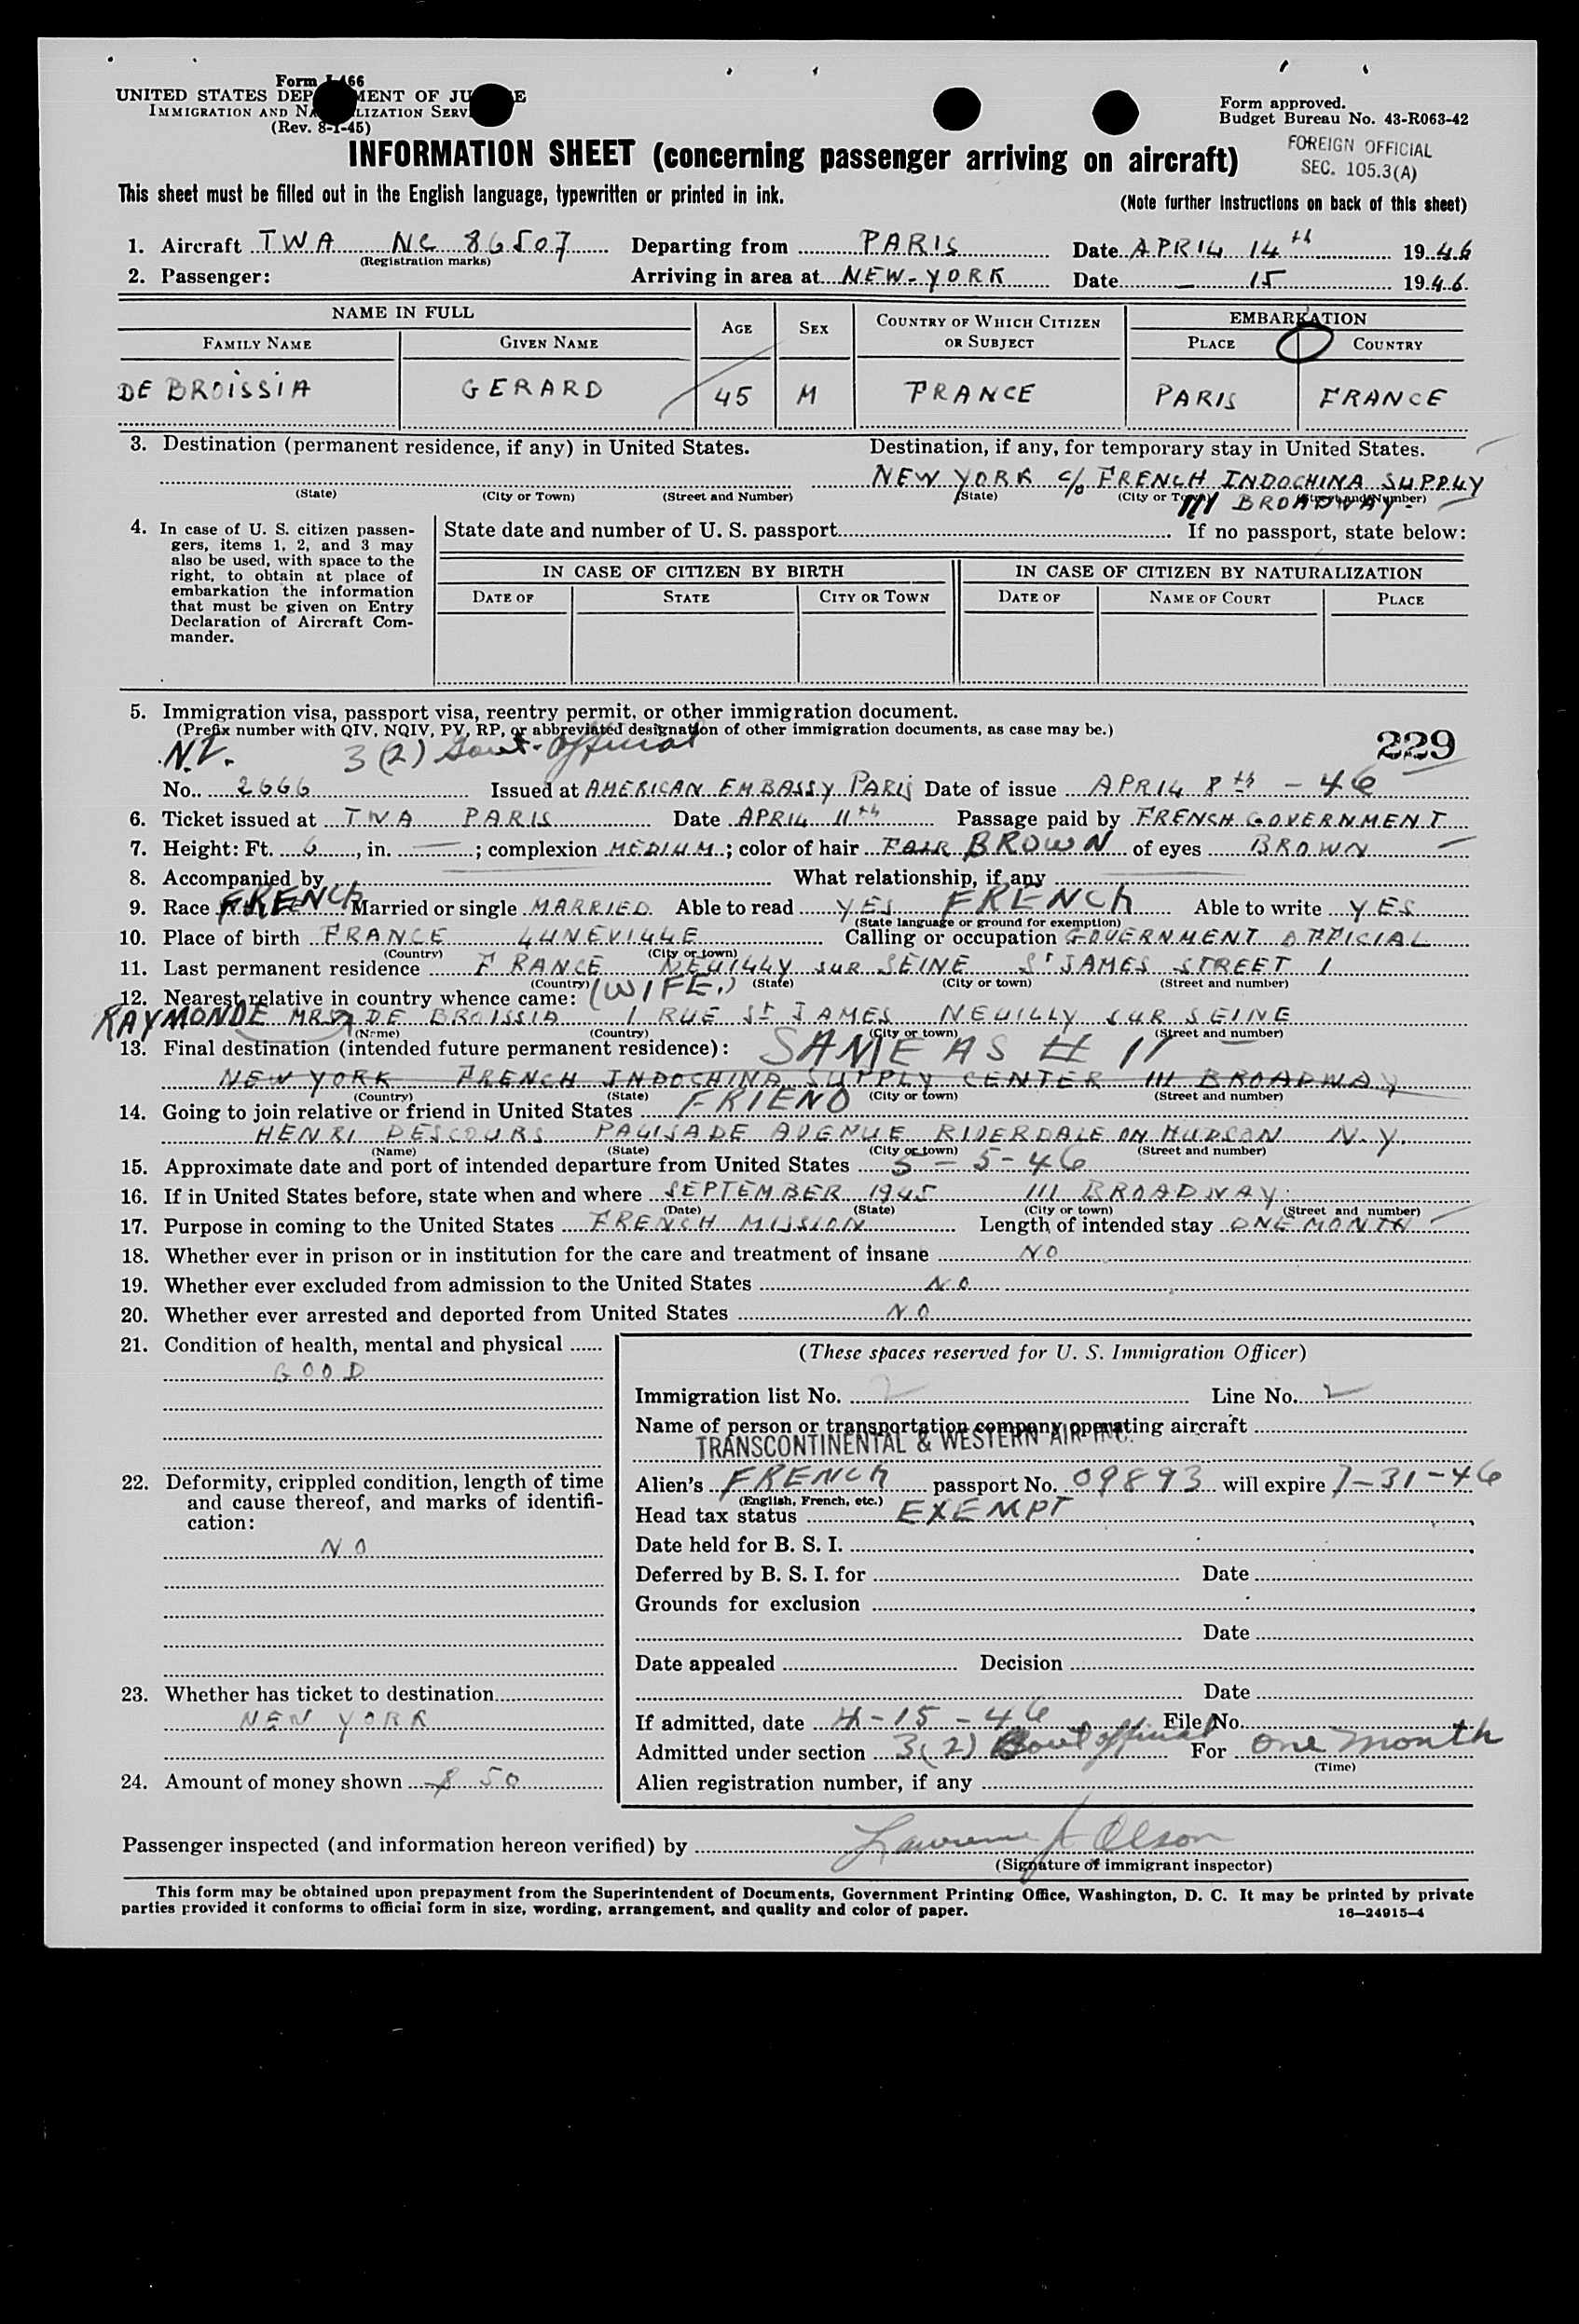 Form I-466
UNITED STATES DEPARTMENT OF JUSTICE
IMMIGRATION AND NATURALIZATION SERVICE
(Rev. 8-1-45)
Form approved.
Budget Bureau No. 43-R063-42
INFORMATION SHEET (concerning passenger arriving on aircraft)
FOREIGN OFFICIAL
SEC. 105.3(A)
This sheet must be filled out in the English language, typewritten or printed in ink.
(Note further instructions on back of this sheet)
1. Aircraft TWA NC 86507 Departing from PARIS Date APRIL 14th 1946
(Registration marks)
2. Passenger: Arriving in area at NEW-YORK Date - 15 1946
NAME IN FULL AGE SEX COUNTRY OF WHICH CITIZEN OR SUBJECT EMBARKATION
FAMILY NAME GIVEN NAME PLACE COUNTRY
DE BROISSIA GERARD 45 M FRANCE PARIS FRANCE
3. Destination (permanent residence, if any) in United States. Destination, if any, for temporary stay in United States.
NEW YORK c/o FRENCH INDOCHINA SUPPLY
(State) (City or Town) (Street and Number) (State) (City or Town) (Street and Number)
111 BROADWAY
4. In case of U. S. citizen passengers, items 1, 2, and 3 may also be used, with space to the right, to obtain at place of embarkation the information that must be given on Entry Declaration of Aircraft Commander.
State date and number of U. S. passport If no passport, state below:
IN CASE OF CITIZEN BY BIRTH IN CASE OF CITIZEN BY NATURALIZATION
DATE OF STATE CITY OR TOWN DATE OF NAME OF COURT PLACE
5. Immigration visa, passport visa, reentry permit, or other immigration document.
(Prefix number with QIV, NQIV, PV, RP, or abbreviated designation of other immigration documents, as case may be.)
3(2) Govt. Official 229
No. 2666 Issued at AMERICAN EMBASSY PARIS Date of issue APRIL 8th - 46
6. Ticket issued at TWA PARIS Date APRIL 11th Passage paid by FRENCH GOVERNMENT
7. Height: Ft. 6, in. —; complexion MEDIUM; color of hair FAIR BROWN of eyes BROWN
8. Accompanied by What relationship, if any
9. Race FRENCH Married or single MARRIED Able to read YES FRENCH Able to write YES
(State language or ground for exemption)
10. Place of birth FRANCE LUNEVILLE Calling or occupation GOVERNMENT OFFICIAL
(Country) (City or town)
11. Last permanent residence FRANCE NEUILLY SUR SEINE St JAMES STREET 1
(Country) (State) (City or town) (Street and number)
12. Nearest relative in country whence came: (WIFE.)
RAYMONDE MRS DE BROISSIA 1 RUE St JAMES NEUILLY SUR SEINE
(Name) (Country) (City or town) (Street and number)
13. Final destination (intended future permanent residence): SAME AS # 11
NEW YORK FRENCH INDOCHINA SUPPLY CENTER 111 BROADWAY
(Country) (State) (City or town) (Street and number)
14. Going to join relative or friend in United States FRIEND
HENRI DESCOURS PALISADE AVENUE RIVERDALE ON HUDSON N.Y.
(Name) (State) (City or town) (Street and number)
15. Approximate date and port of intended departure from United States 5-5-46
16. If in United States before, state when and where SEPTEMBER 1945 111 BROADWAY
(Date) (State) (City or town) (Street and number)
17. Purpose in coming to the United States FRENCH MISSION Length of intended stay ONE MONTH
18. Whether ever in prison or in institution for the care and treatment of insane NO
19. Whether ever excluded from admission to the United States NO
20. Whether ever arrested and deported from United States NO
21. Condition of health, mental and physical
GOOD
22. Deformity, crippled condition, length of time and cause thereof, and marks of identification:
NO
23. Whether has ticket to destination
NEW YORK
24. Amount of money shown $ 50
(These spaces reserved for U. S. Immigration Officer)
Immigration list No. 2 Line No. 2
Name of person or transportation company operating aircraft
TRANSCONTINENTAL & WESTERN AIR INC.
Alien's FRENCH passport No. 09893 will expire 7-31-46
(English, French, etc.)
Head tax status EXEMPT
Date held for B. S. I.
Deferred by B. S. I. for Date
Grounds for exclusion
Date
Date appealed Decision
Date
If admitted, date 4-15-46 File No.
Admitted under section 3(2) Govt official For One Month
(Time)
Alien registration number, if any
Passenger inspected (and information hereon verified) by Lawrence A Olson
(Signature of immigrant inspector)
This form may be obtained upon prepayment from the Superintendent of Documents, Government Printing Office, Washington, D. C. It may be printed by private
parties provided it conforms to official form in size, wording, arrangement, and quality and color of paper.
16—24915-4